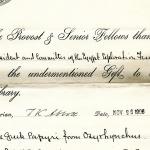 e Provost & Senior Fellows than
sident and Committee of the Egypt Exploration Fun
the undermentioned Gift to
brary.
rian, T K Abbott NOV 26 1906
Greek Papyri from Oxyrhynchus